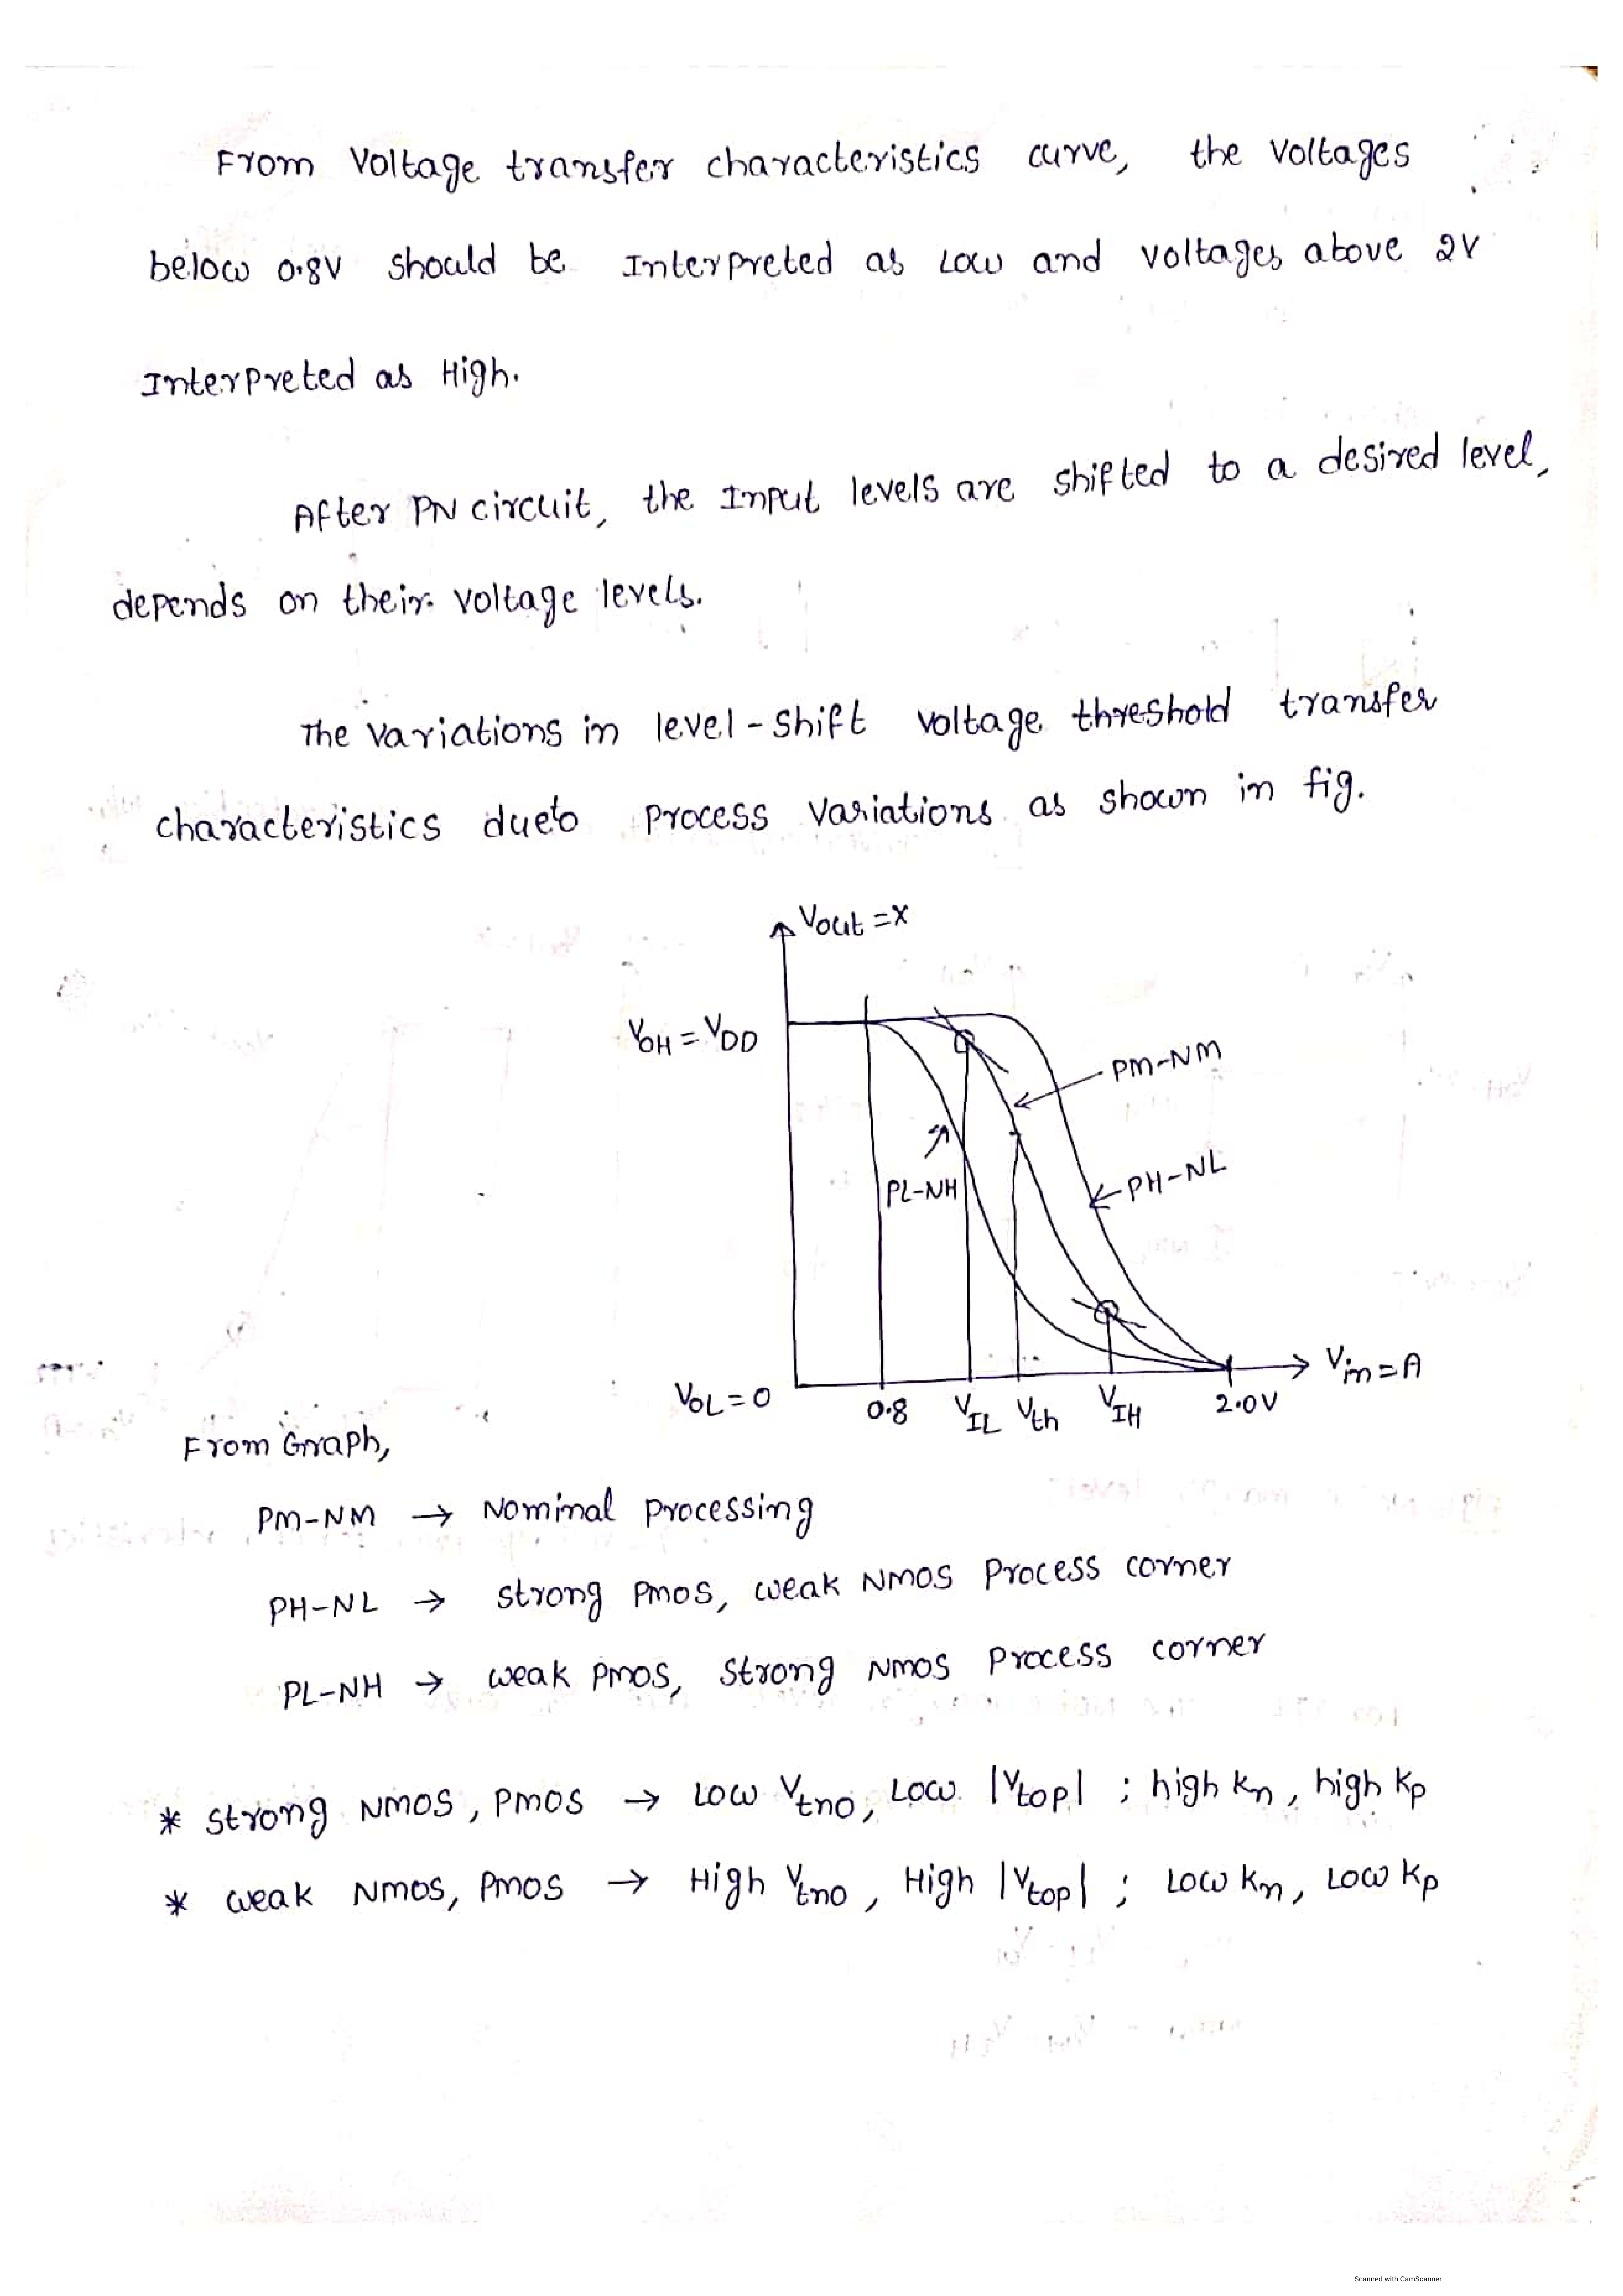 From Voltage transfer characteristics curve, the voltages
below 0.8V should be Interpreted as Low and voltages above 2V
Interpreted as High.
After PN circuit, the Input levels are shifted to a desired level,
depends on their voltage levels.
The variations in level-shift voltage threshold transfer
characteristics dueto process variations as shown in fig.
Vout = X
VOH = VDD
PM-NM
PL-NH
PH-NL
VOL = 0
0.8 VIL Vth VIH 2.0V
Vin = A
From Graph,
PM-NM → Nominal processing
PH-NL → strong PMOS, weak NMOS Process corner
PL-NH → weak PMOS, strong NMOS Process corner
* strong NMOS, PMOS → Low Vtno, Low |Vtop| ; high kn, high kp
* weak NMOS, PMOS → High Vtno, High |Vtop| ; Low kn, Low kp
Scanned with CamScanner